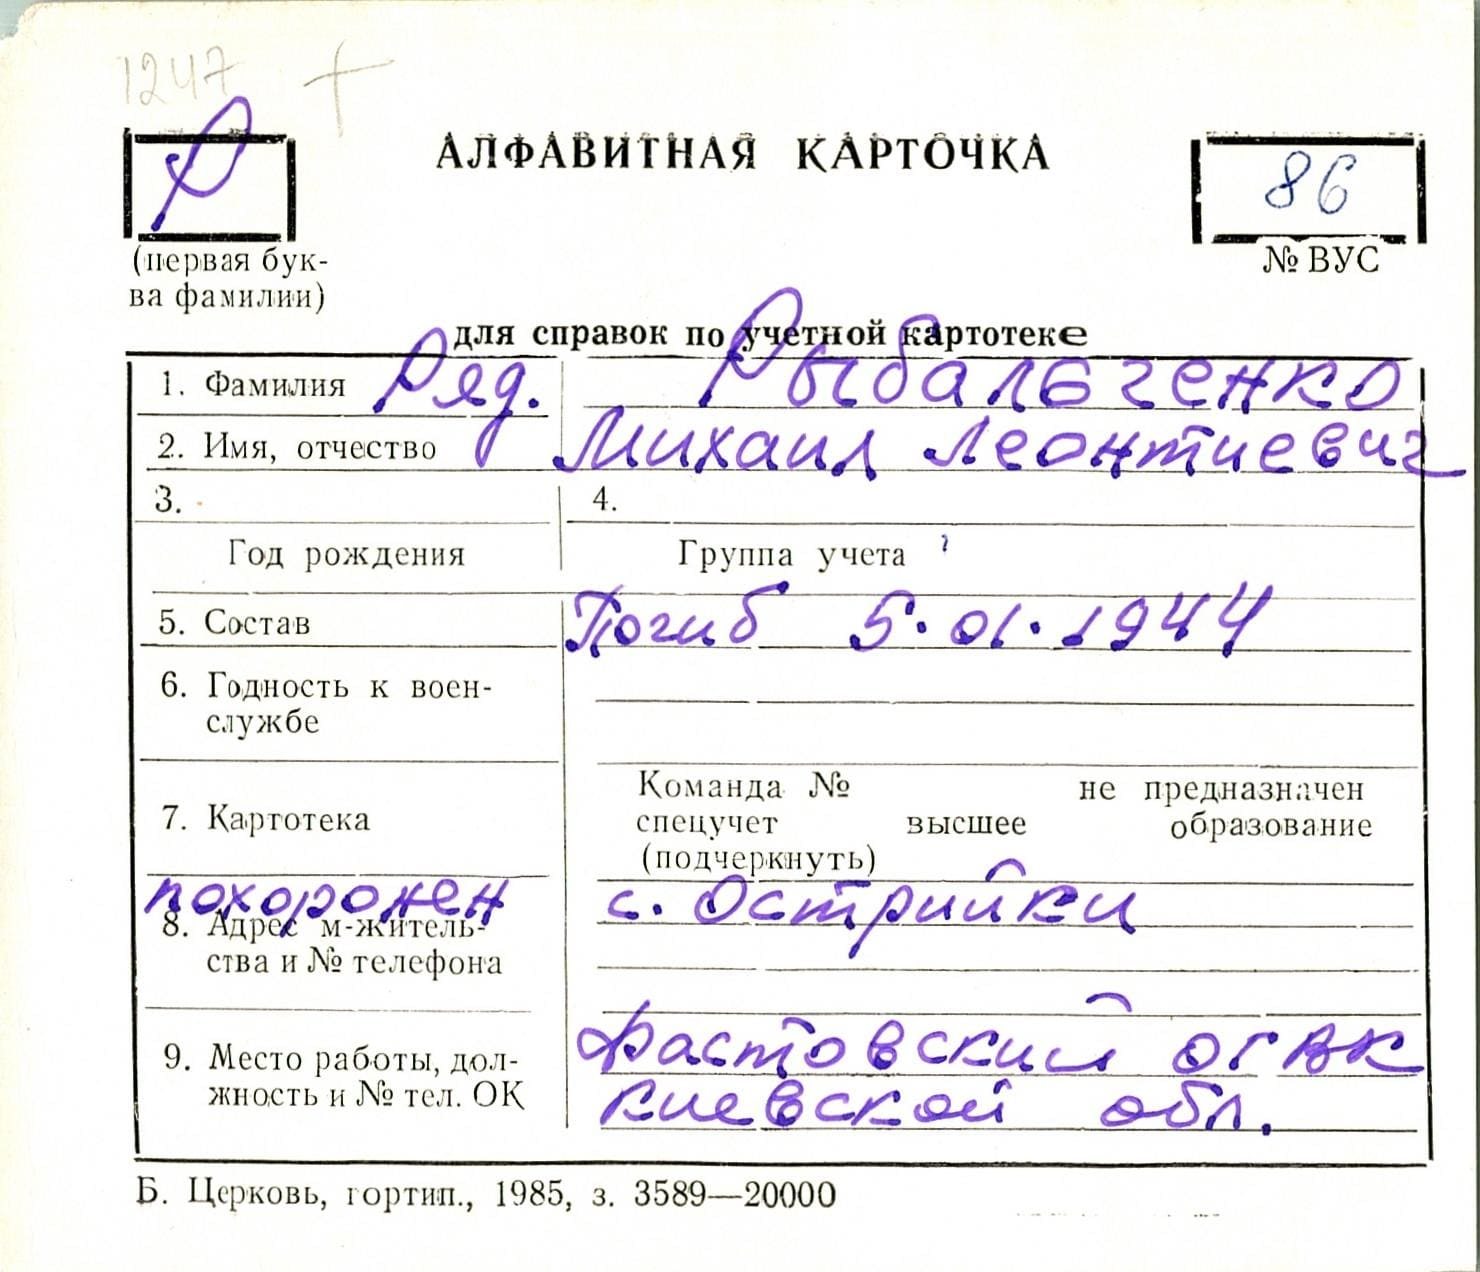 1247 +
Р
АЛФАВИТНАЯ КАРТОЧКА
86
(первая бук-
ва фамилии)
№ ВУС
для справок по учетной картотеке
1. Фамилия Ряд. Рыбальченко
2. Имя, отчество Михаил Леонтиевич
3. 4.
Год рождения Группа учета
5. Состав Погиб 5.01.1944
6. Годность к воен-
службе
7. Картотека
Команда № не предназначен
спецучет высшее образование
(подчеркнуть)
похоронен с. Острийки
8. Адрес м-житель-
ства и № телефона
9. Место работы, дол-
жность и № тел. ОК
Фастовский ОГВК
Киевской обл.
Б. Церковь, гортип., 1985, з. 3589—20000